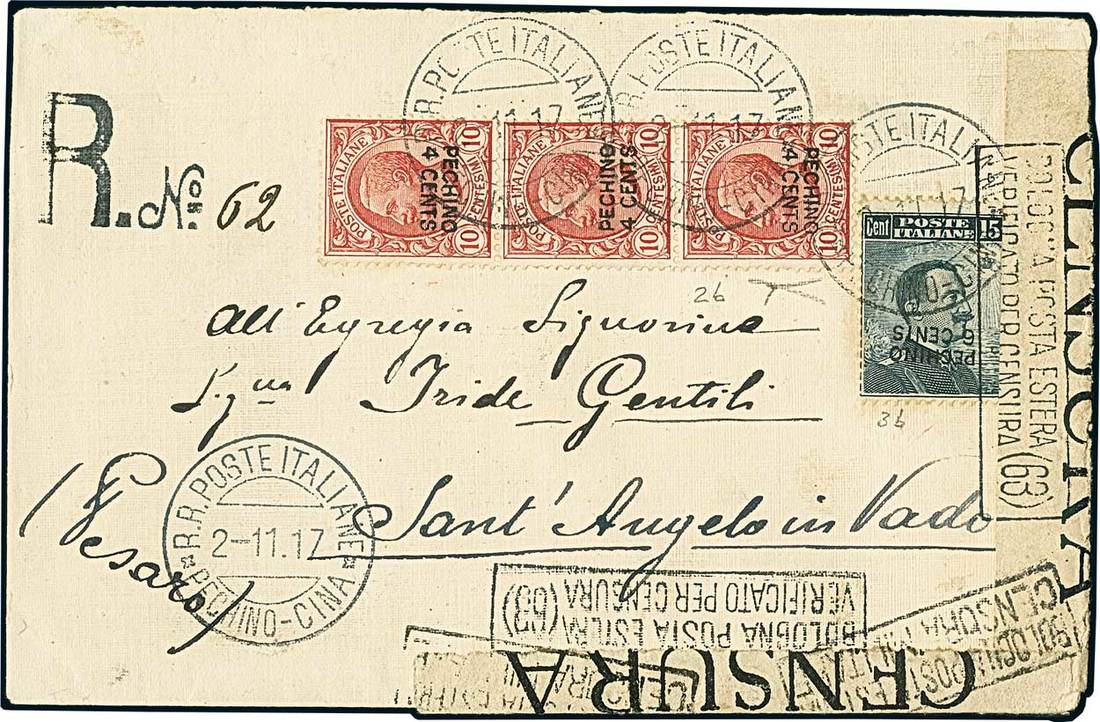 R. No. 62
R.R. POSTE ITALIANE
2-11.17
POSTE ITALIANE
10 CENTESIMI 10
PECHINO
4 CENTS
POSTE ITALIANE
10 CENTESIMI 10
PECHINO
4 CENTS
POSTE ITALIANE
10 CENTESIMI 10
PECHINO
4 CENTS
POSTE ITALIANE
Cent POSTE ITALIANE 15
PECHINO
6 CENTS
2b
3b
All'Egregia Signorina
Sig.na Iride Gentili
Sant'Angelo in Vado
(Pesaro)
R.R. POSTE ITALIANE
2-11.17
PECHINO-CINA
BOLOGNA POSTA ESTERA (63)
VERIFICATO PER CENSURA (63)
CENSURA
BOLOGNA POSTA ESTERA (63)
VERIFICATO PER CENSURA (63)
CENSURA
BOLOGNA POSTA
CENSURA